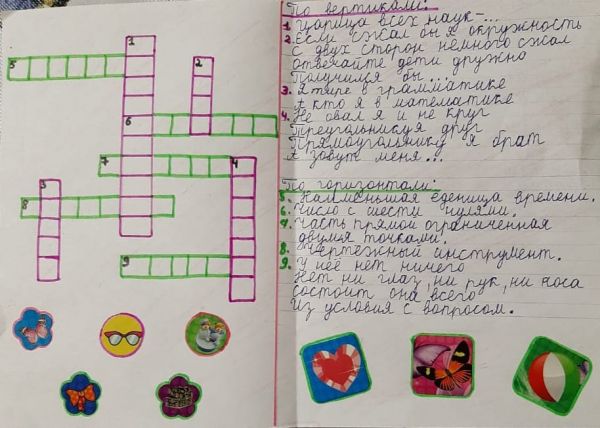 1
2
5
6
7
4
3
8
9
По вертикали:
1 Царица всех наук-...
2. Если сжал бы я окружность
С двух сторон немного сжал
Отвечайте дети дружно
Получился бы...
3. Я тире в грамматике
А кто я в математике
4. Не овал я и не круг
Треугольнику я друг
Прямоугольнику я брат
А зовут меня...
По горизонтали:
5. Наименьшая еденица времени.
6. Число с шестью нулями.
7. Часть прямой ограниченная
двумя точками.
8. Чертежный инструмент.
9. У неё нет ничего
Нет ни глаз, ни рук, ни носа
Состоит она всего
Из условия с вопросом.